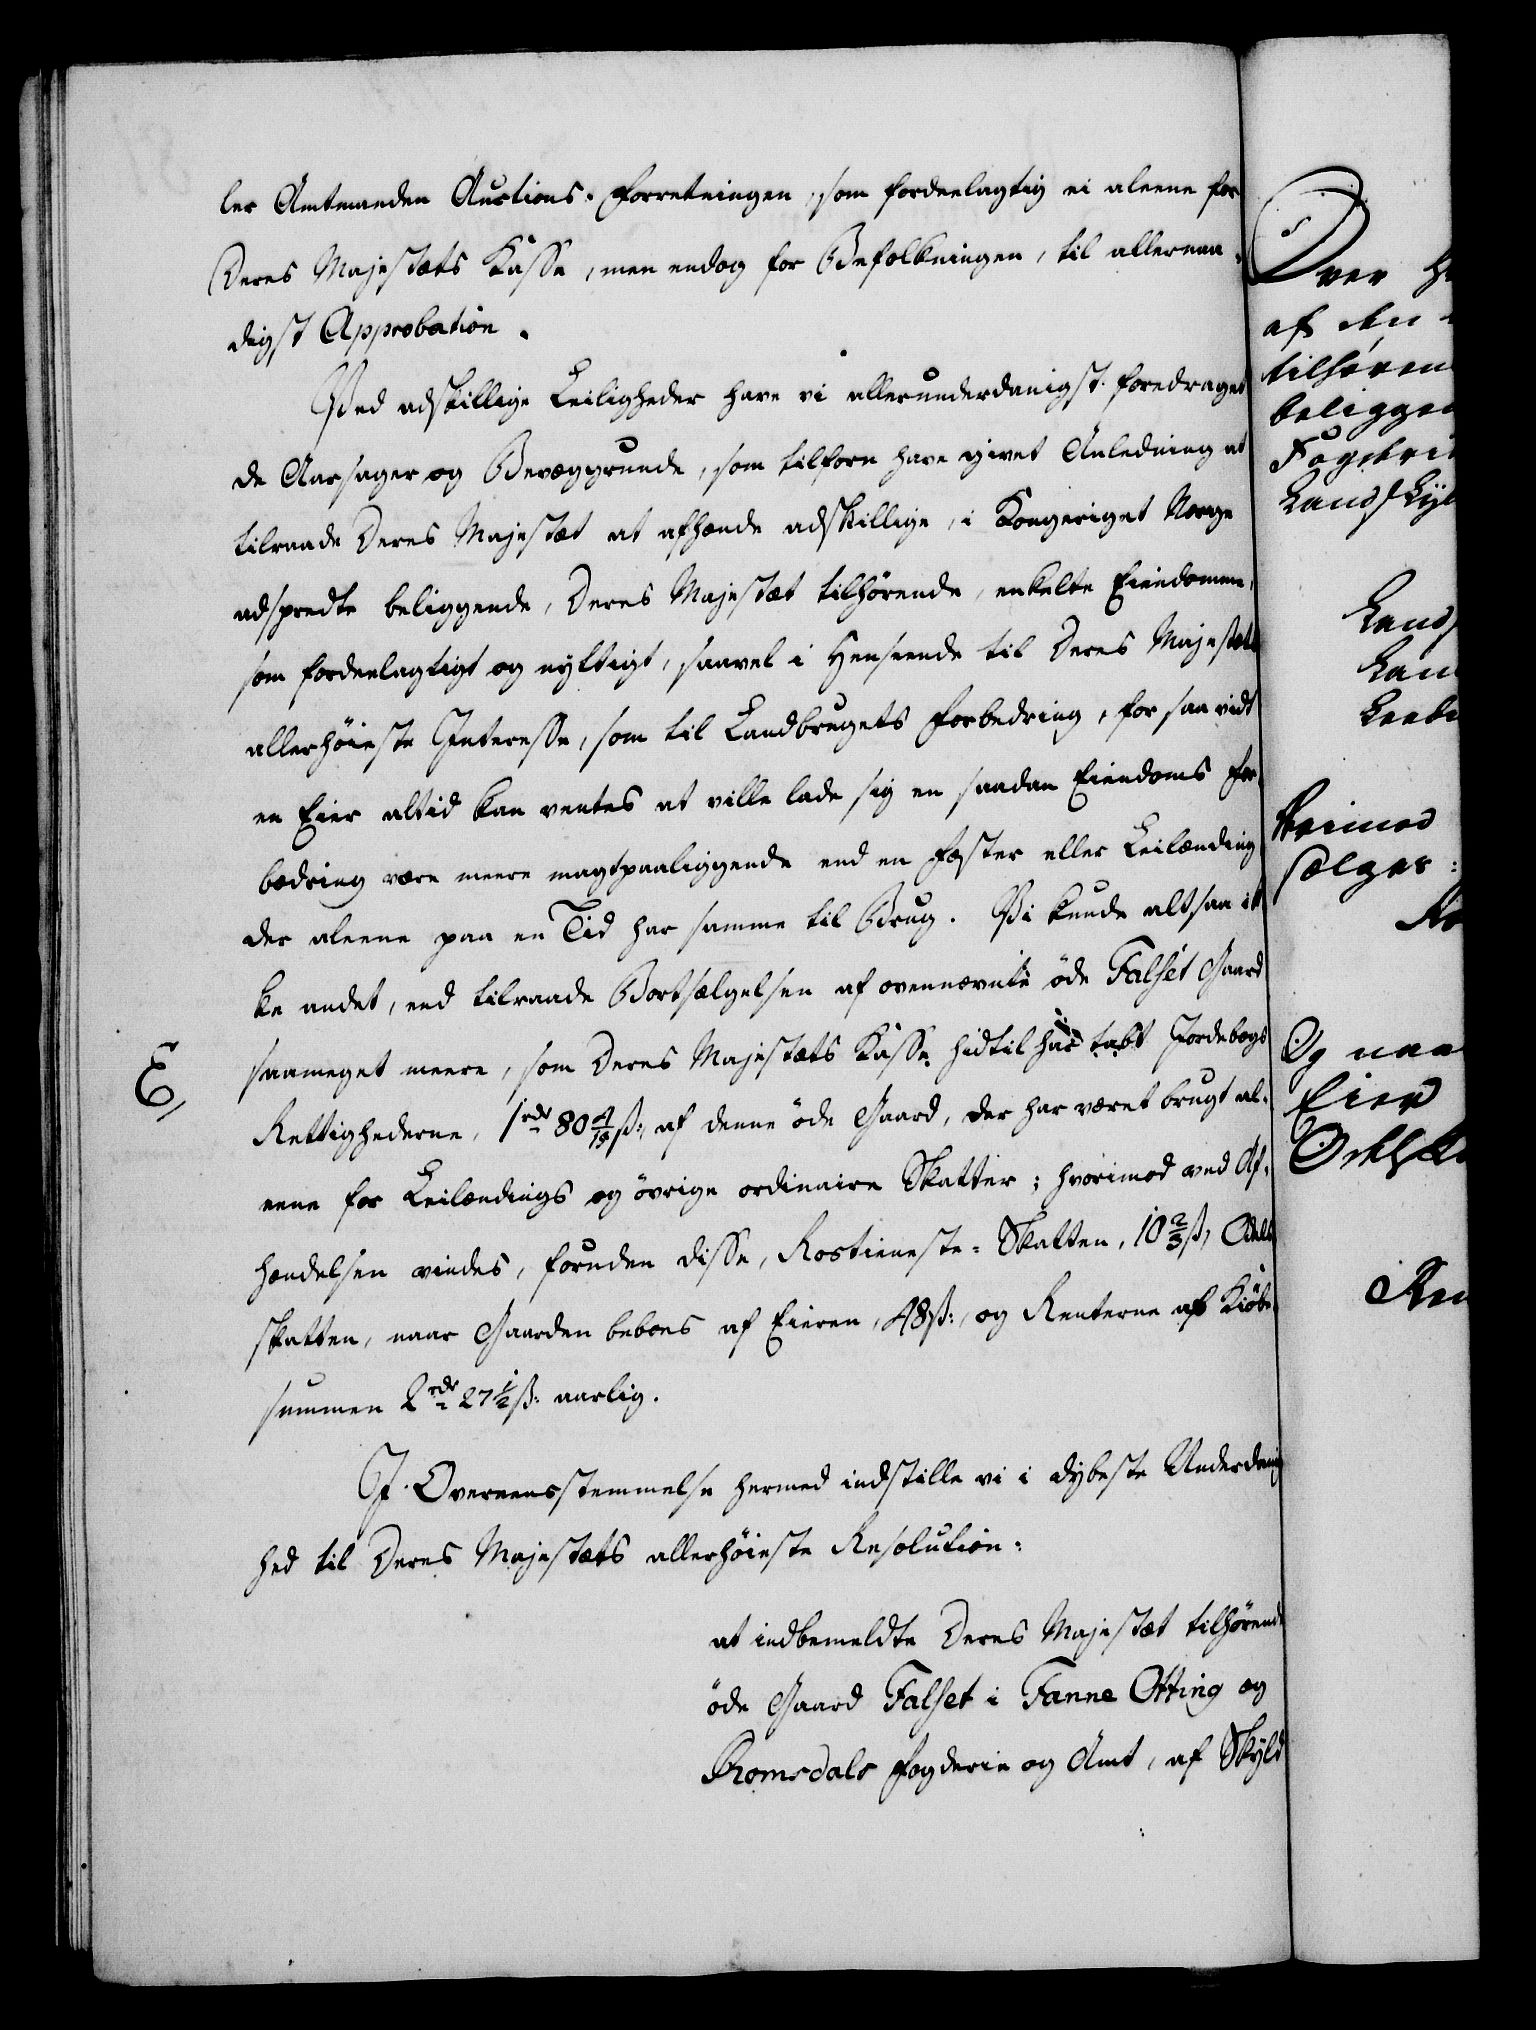 ler Amtmanden Auctions-Forretningen, som fordeelagtig ei aleene for
Deres Majestæts Kasse, men endog for Befolkningen, til allernaa-
digst Approbation.
Ved adskillige Leiligheder have vi allerunderdanigst foredraget
de Aarsager og Bevæggrunde, som tilforn have givet Anledning at
tilraade Deres Majestæt at afhænde adskillige, i Kongeriget Norge
adspredte beliggende, Deres Majestæt tilhørende, enkelte Eiendomme,
som fordeelagtigt og nyttigt, saavel i Henseende til Deres Majestæts
allerhøieste Interesse, som til Landbrugets Forbedring, for saa vidt
en Eier altid kan ventes at ville lade sig en saadan Eiendoms For-
bedring være meere magtpaaliggende end en Fæster eller Leilænding
der aleene paa en Tid har samme til Brug. Vi kunde altsaa ik-
ke andet, end tilraade Bortsælgelsen af ovennævnte øde Falset Gaard
saameget meere, som Deres Majestæts Kasse hidtil har tabt Jordebogs
E,
Rettighederne, 1 rdr 80 4/19 ß, af denne øde Gaard, der har været brugt al-
eene for Leilændings og øvrige ordinaire Skatter; hvorimod ved Af-
hændelsen vindes, foruden disse, Rostieneste-Skatten, 10 2/3 ß, Odels
skatten, naar Gaarden beboes af Eieren, 48 ß:, og Renterne af Kiøbe-
summen 2 rdr 27 1/2 ß: aarlig.
I Overeensstemmelse hermed indstille vi i dybeste Underdanig
hed til Deres Majestæts allerhøieste Resolution:
at indbemeldte Deres Majestæt tilhørende
øde Gaard Falset i Fanne Otting og
Romsdals Fogderie og Amt, af Skyld
af den
tilhøren
beligge
Fogderi
Lands
Lan
hvimod
sælges:
Og naa
Eier